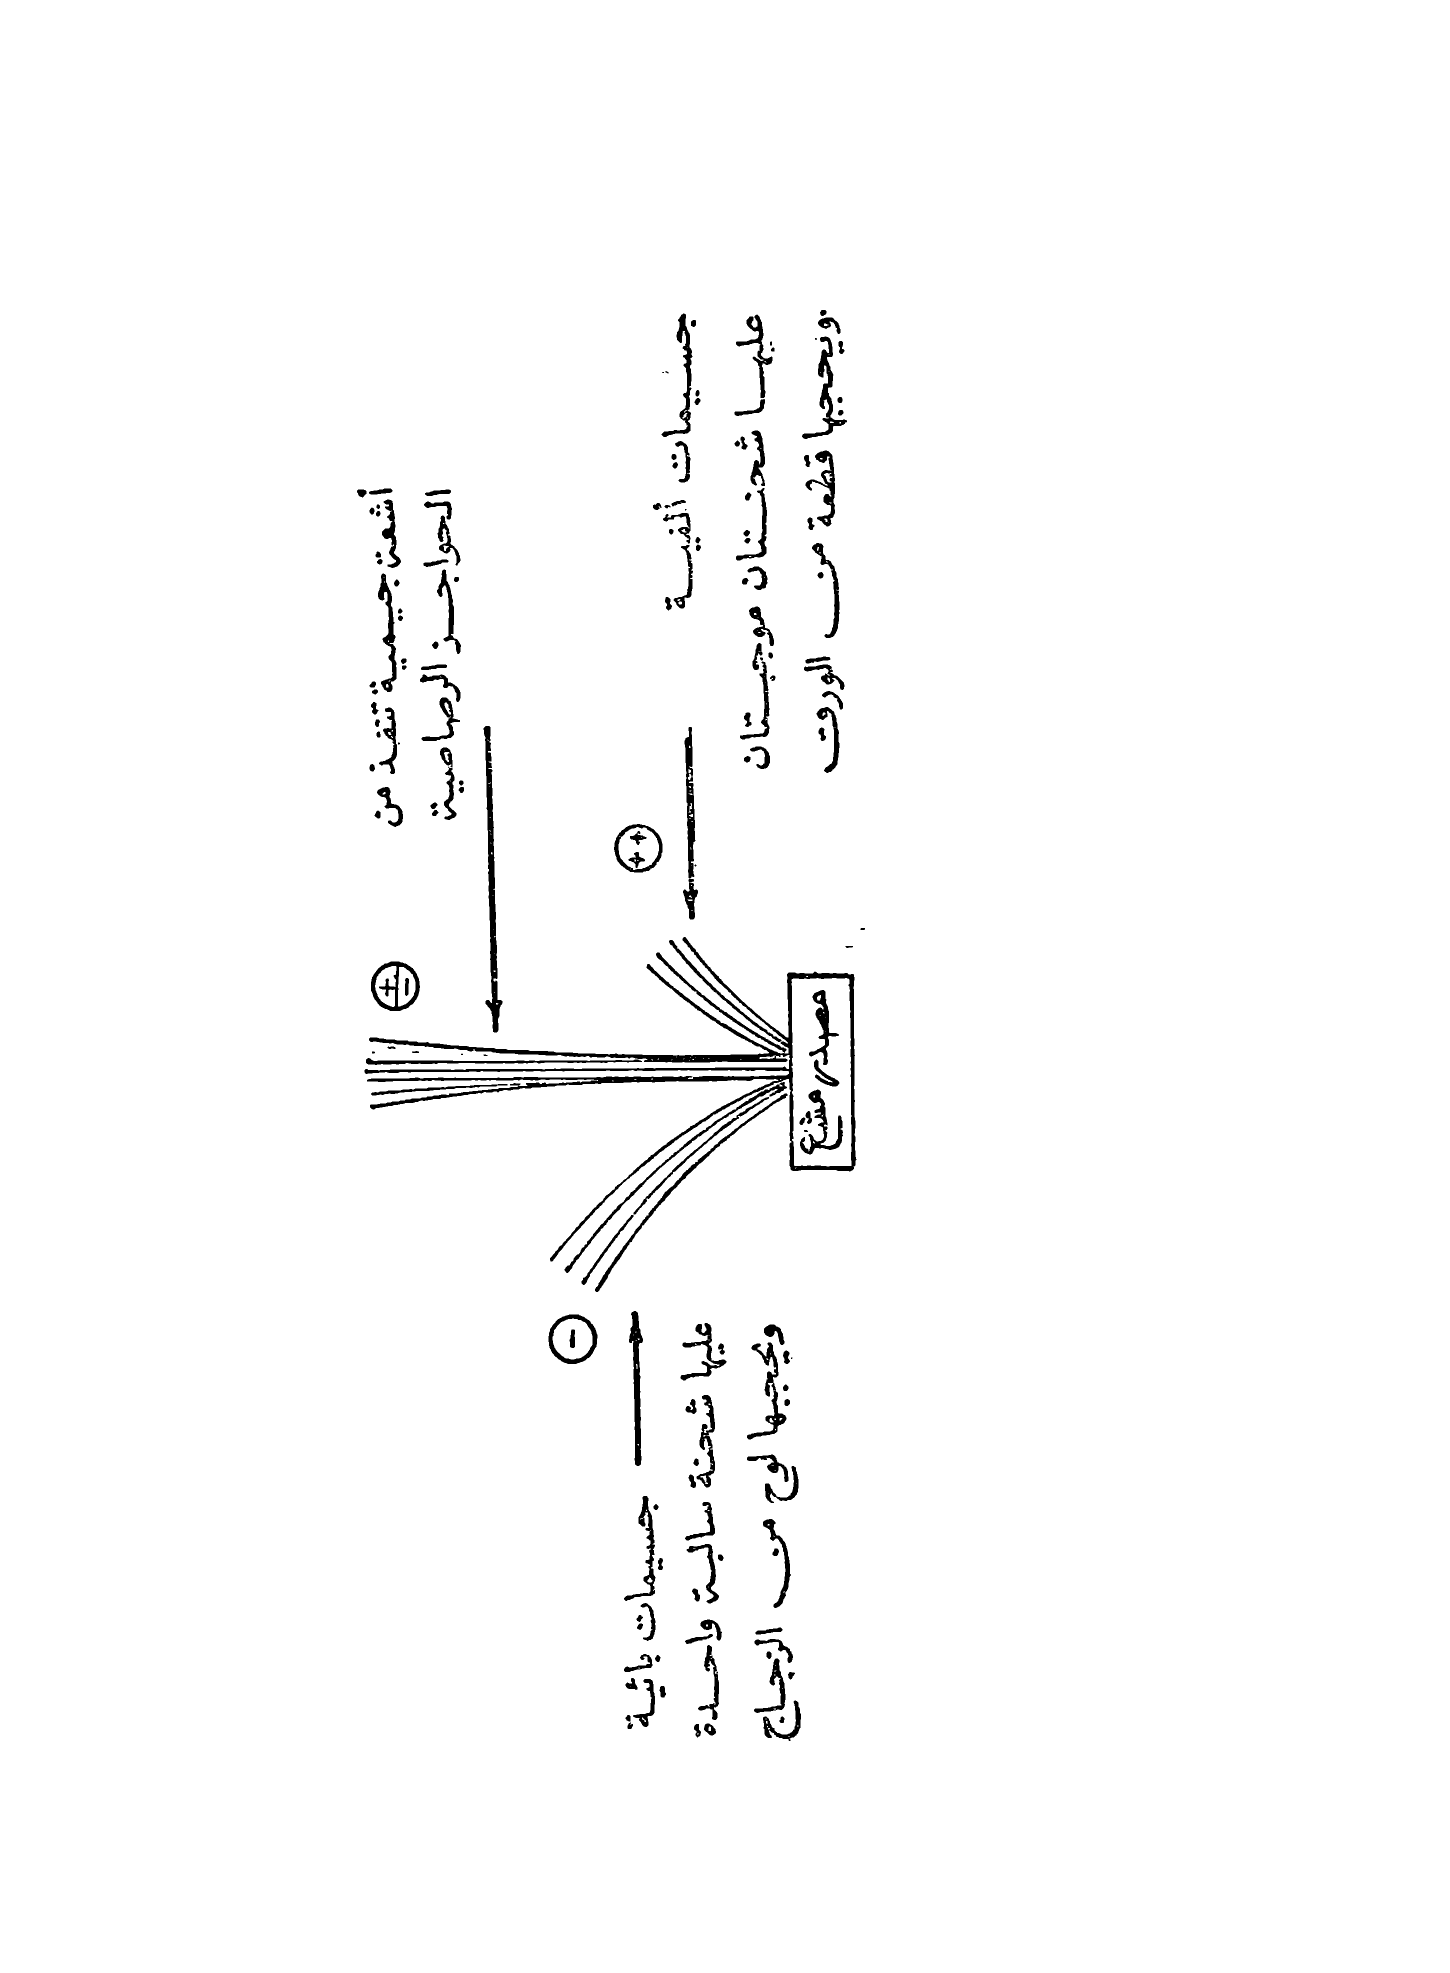 أشعة جيمية تنفذ من
الحواجز الرصاصية
±
جسيمات ألفية
عليها شحنتان موجبتان
ويحجبها قطعة من الورق
++
مصدر مشع
-
جسيمات بائية
عليها شحنة سالبة واحدة
ويحجبها لوح من الزجاج